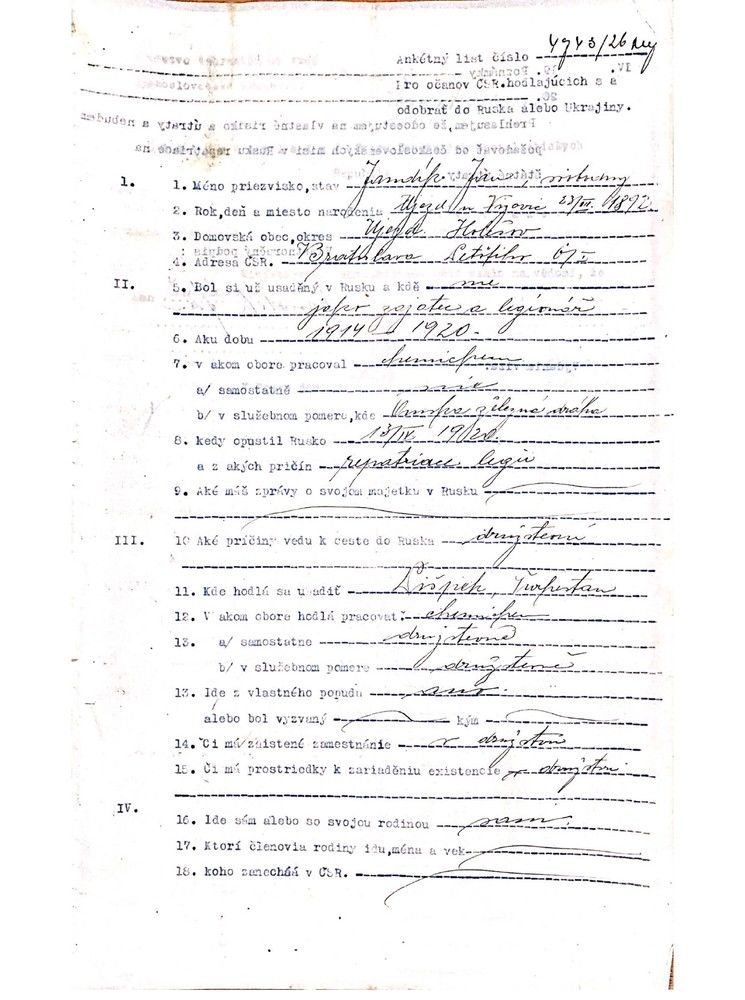 4943/26
Ankétný list číslo
Pro očanov ČSR.hodlajúcich s a
odobrať do Ruska alebo Ukrajiny.
I. 1. Méno priezvisko,stav Jandík svobodný
2. Rok,deň a miesto narodenia Ujezd u Vizovic 23/VII. 1892.
3. Domovská obec,okres Ujezd Holešov
4. Adresa ČSR. Bratislava 6/I
II. 5. Bol si už usaděný v Rusku a kdě nie
jako zajatec a legionář
6. Aku dobu 1914 - 1920.
7. v akom obore pracoval chemickem
a/ samostatně nie
b/ v služebnom pomere,kde železná dráha
8. kedy opustil Rusko 13/IV 1920.
a z akých príčin repatriace legií
9. Aké máš zprávy o svojom majetku v Rusku
III. 10 Aké príčiny vedu k ceste do Ruska družstevní
11. Kde hodlá sa usadiť Pišpek, Turkestan
12. V akom obore hodlá pracovať: chemickem
13. a/ samostatne družstevně
b/ v služebnom pomere družstevně
13. Ide z vlastného popudu ano.
alebo bol vyzvaný kým
14. Či má zaistené zamestnánie v družstvu
15. Či má prostriedky k zariaděniu existencie v družstvu
IV. 16. Ide sám alebo so svojou rodinou sam.
17. Ktorí členovia rodiny idu,ména a vek
18. koho zanecháá v ČSR.